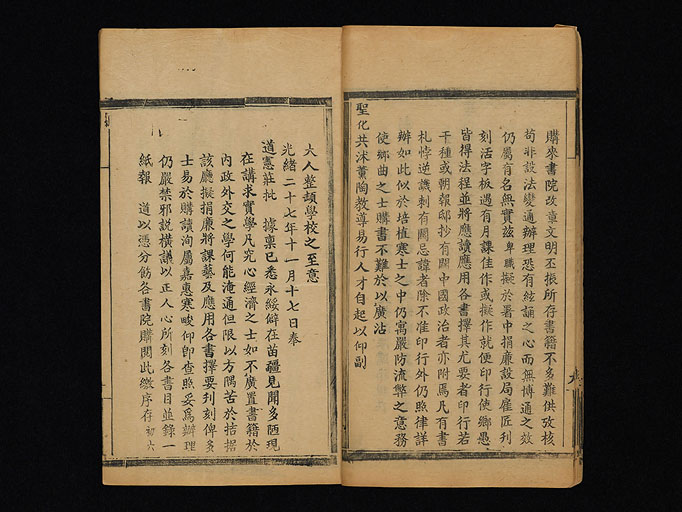 購來書院改章文明丕振所存書籍不多難供攷核
苟非設法變通辦理恐有絃誦之心而無博通之效
仍屬有名無實茲卑職擬於署中捐廉設局雇匠刋
刻活字板遇有月課佳作或擬作就便印行使鄉愚
皆得法程並將應讀應用各書擇其尤要者印行若
干種或朝報邸抄有關中國政治者亦附焉凡有書
札悖逆譏刺有關忌諱者除不准印行外仍照律詳
辦如此似於培植寒士之中仍寓嚴防流弊之意務
使鄉曲之士購書不難於以廣沾
聖化共沐薰陶教導易行人才自起以仰副
大人整頓學校之至意
光緒二十七年十一月十七日奉
道憲莊批 據禀已悉永綏僻在苗疆見聞多陋現
在講求實學凡究心經濟之士如不廣置書籍於
內政外交之學何能淹通但限以方隅苦於拮据
該廳擬捐廉將課藝及應用各書擇要刋刻俾多
士易於購讀洵屬嘉惠寒畯仰卽查照妥爲辦理
仍嚴禁邪說橫議以正人心所刻各書目並錄一
紙報 道以憑分飭各書院購閱此繳序存初六